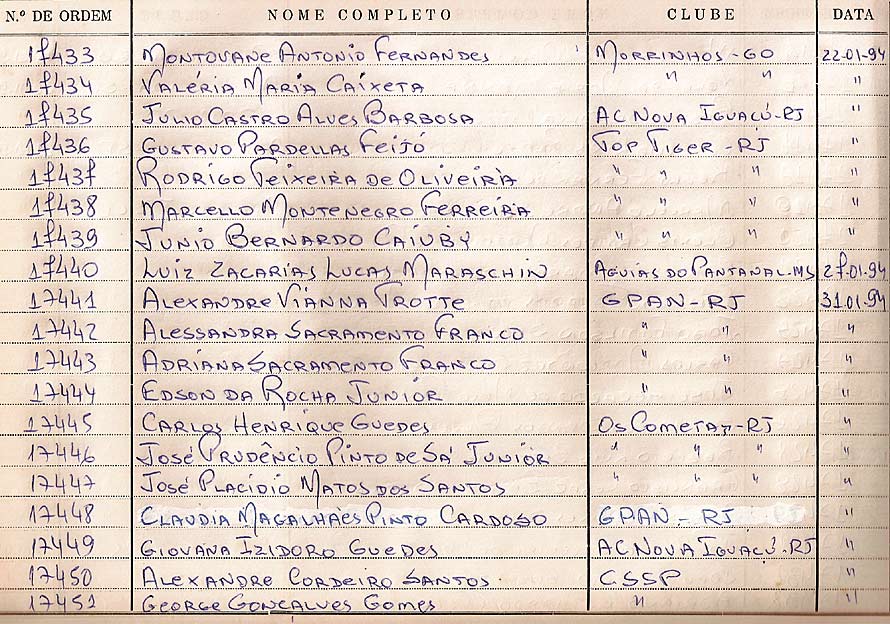 N.º DE ORDEM NOME COMPLETO CLUBE DATA
17433 MONTOVANE ANTONIO FERNANDES MORRINHOS - GO 22-01-94
17434 VALÉRIA MARIA CAIXETA " " "
17435 JULIO CASTRO ALVES BARBOSA AC NOVA IGUAÇÚ-RJ "
17436 GUSTAVO PARDELLAS FEIJÓ TOP TIGER - RJ "
17437 RODRIGO TEIXEIRA DE OLIVEIRA " " " "
17438 MARCELLO MONTENEGRO FERREIRA " " " "
17439 JUNIO BERNARDO CAIUBY " " " "
17440 LUIZ ZACARIAS LUCAS MARASCHIN AGUIAS DO PANTANAL-MS 27-01-94
17441 ALEXANDRE VIANNA TROTTE GPAN - RJ 31.01.94
17442 ALESSANDRA SACRAMENTO FRANCO " " "
17443 ADRIANA SACRAMENTO FRANCO " " "
17444 EDSON DA ROCHA JUNIOR " " "
17445 CARLOS HENRIQUE GUEDES OS COMETAS-RJ "
17446 JOSÉ PRUDÊNCIO PINTO DE SÁ JUNIOR " " " "
17447 JOSÉ PLACÍDIO MATOS DOS SANTOS " " " "
17448 CLAUDIA MAGALHÃES PINTO CARDOSO GPAN - RJ "
17449 GIOVANA IZIDORO GUEDES AC NOVA IGUAÇÚ-RJ "
17450 ALEXANDRE CORDEIRO SANTOS CSSP "
17451 GEORGE GONÇALVES GOMES " "